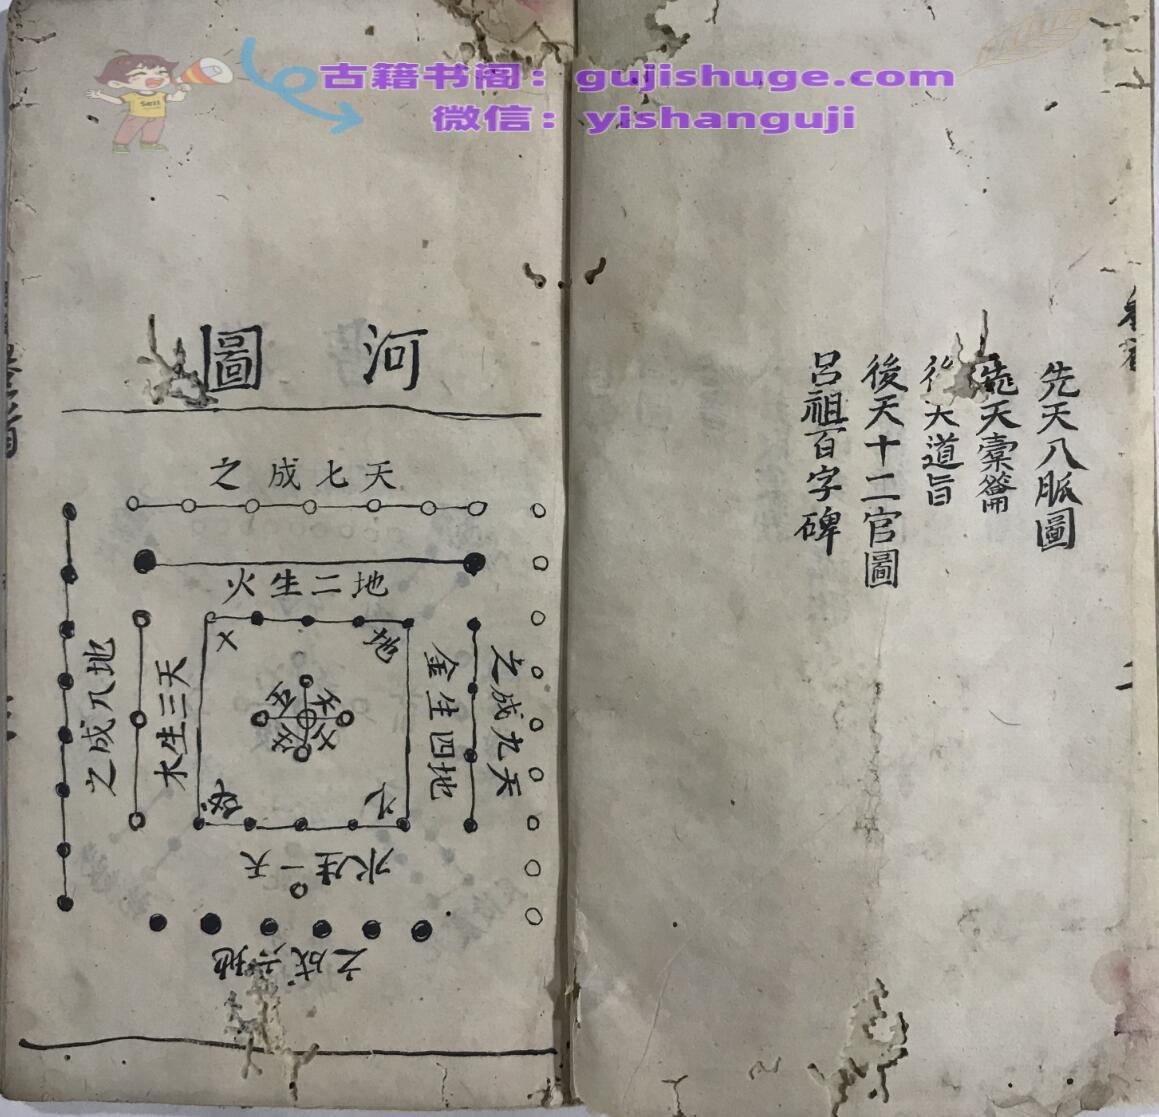 古籍书阁：gujishuge.com
微信：yishanguji
先天八脈圖
先天橐籥
後天道旨
後天十二官圖
呂祖百字碑
二
河圖
天七成之
地二生火
天九成之
地四生金
地
天三生木
地八成之
天一生水
地六成之